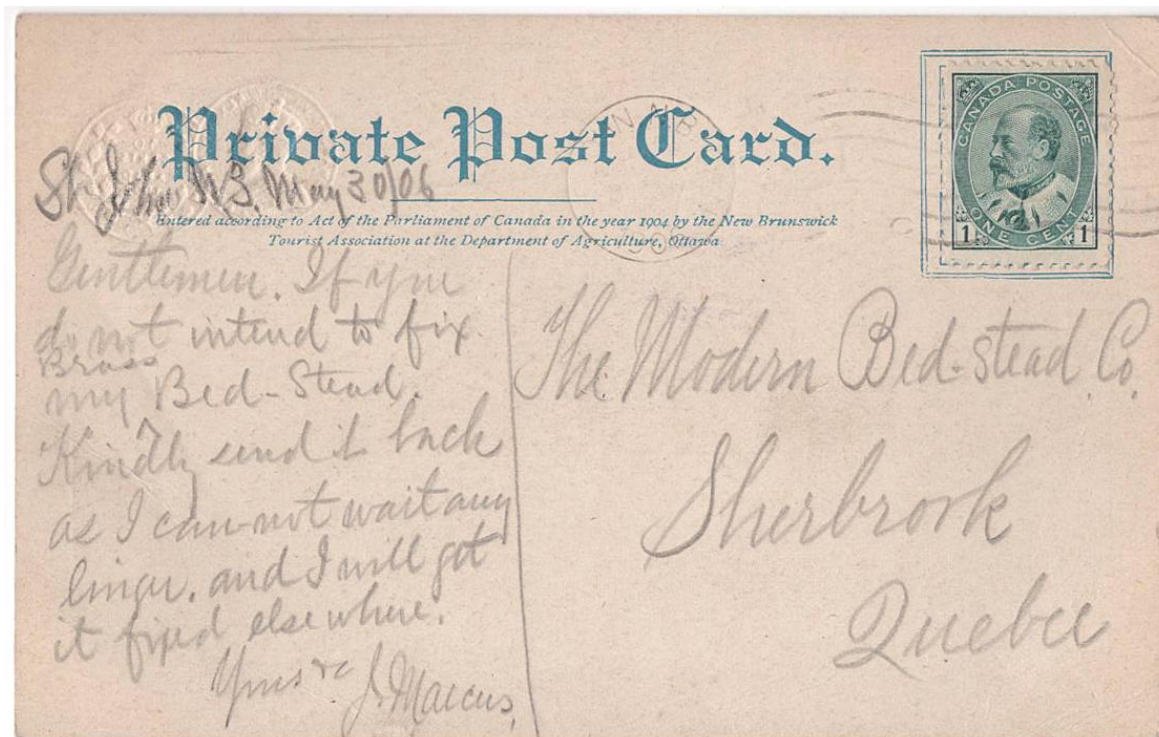 Private Post Card.
St John N.B. May 30/06
Entered according to Act of the Parliament of Canada in the year 1904 by the New Brunswick
Tourist Association at the Department of Agriculture, Ottawa
CANADA POSTAGE
1 ONE CENT 1
N.B.
Gentlemen. If you
do not intend to fix
Brass
my Bed-Stead.
Kindly send it back
as I can-not wait any
longer. and I will get
it fixed elsewhere.
Yours &c
J. Marcus,
The Modern Bed-stead Co.
Sherbrook
Quebec